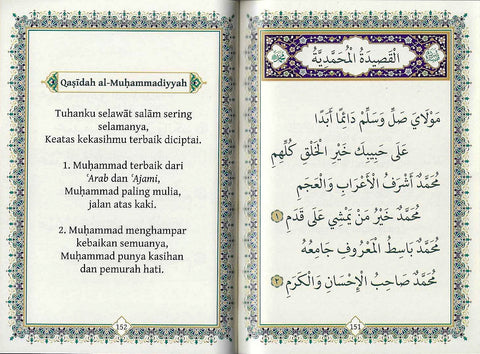 الْقَصِيدَةُ الْمُحَمَّدِيَّةُ
مَوْلَايَ صَلِّ وَسَلِّمْ دَائِمًا أَبَدًا
عَلَى حَبِيبِكَ خَيْرِ الْخَلْقِ كُلِّهِمِ
مُحَمَّدٌ أَشْرَفُ الْأَعْرَابِ وَالْعَجَمِ
مُحَمَّدٌ خَيْرُ مَنْ يَمْشِي عَلَى قَدَمِ ١
مُحَمَّدٌ بَاسِطُ الْمَعْرُوفِ جَامِعُهُ
مُحَمَّدٌ صَاحِبُ الْإِحْسَانِ وَالْكَرَمِ ٢
151
Qaṣīdah al-Muḥammadiyyah
Tuhanku selawāt salām sering
selamanya,
Keatas kekasihmu terbaik diciptai.
1. Muḥammad terbaik dari
‘Arab dan ‘Ajami,
Muḥammad paling mulia,
jalan atas kaki.
2. Muḥammad menghampar
kebaikan semuanya,
Muḥammad punya kasihan
dan pemurah hati.
152